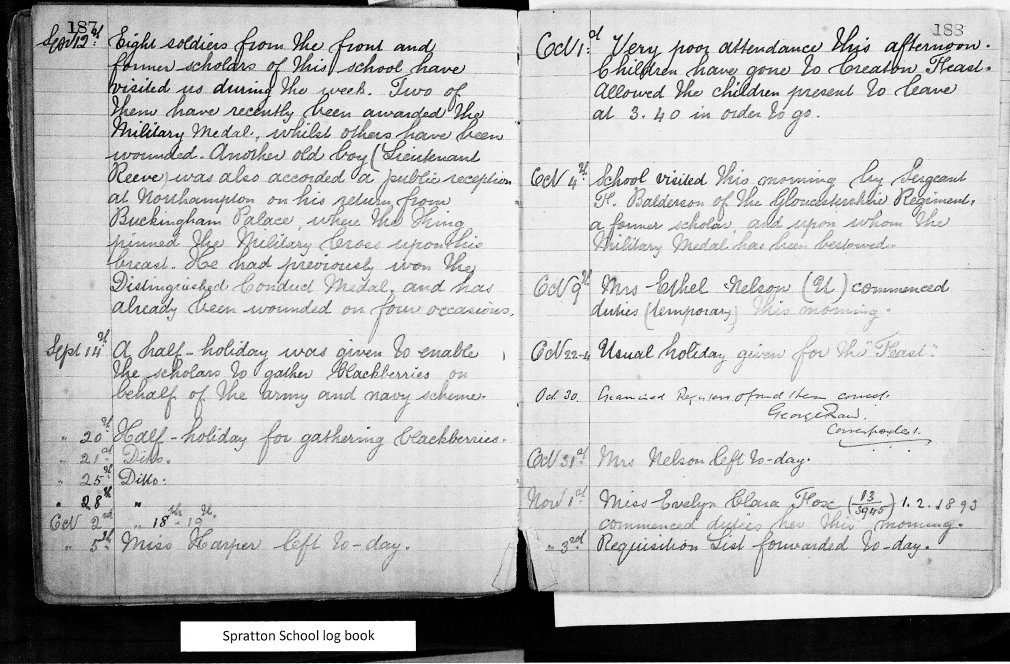 187
Sept 12th Eight soldiers from the front and
former scholars of this school have
visited us during the week. Two of
them have recently been awarded the
Military Medal, whilst others have been
wounded. Another old boy (Lieutenant
Reeve) was also accorded a public reception
at Northampton on his return from
Buckingham Palace, where the King
pinned the Military Cross upon his
breast. He had previously won the
Distinguished Conduct Medal, and has
already been wounded on four occasions.
Sept 14th A half-holiday was given to enable
the scholars to gather blackberries on
behalf of the army and navy scheme.
" 20th Half-holiday for gathering blackberries.
" 21st Ditto.
" 25th Ditto.
" 28th "
Oct 2nd " 18th - 19th
" 5th Miss Harper left to-day.
188
Oct 1st Very poor attendance this afternoon.
Children have gone to Creaton Feast.
Allowed the children present to leave
at 3.40 in order to go.
Oct 4th School visited this morning by Sergeant
F. Balderson of the Gloucestershire Regiment,
a former scholar, and upon whom the
Military Medal has been bestowed.
Oct 9th Mrs Ethel Nelson (U) commenced
duties (temporary) this morning.
Oct 22-4 Usual holiday given for the "Feast".
Oct 30. Examined Registers & found them correct.
George
Correspondent.
Oct 31st Mrs Nelson left to-day.
Nov 1st Miss Evelyn Clara Fox (13/3945) 1.2.1893
commenced duties her this morning.
" 3rd Requisition List forwarded to-day.
Spratton School log book